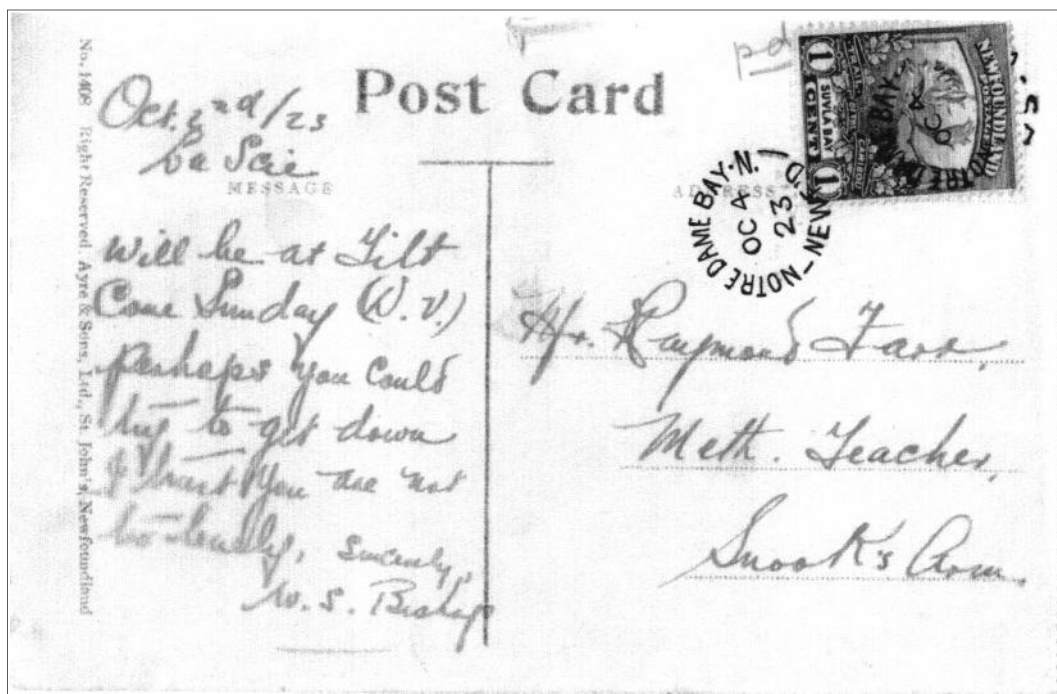 No. 1408 Right Reserved. Ayre & Sons, Ltd., St. John's, Newfoundland
Post Card
pd
Oct. 2nd/23
La Scie
MESSAGE
will be at Tilt
Cove Sunday (D.V.)
perhaps you could
try to get down
I trust you are not
too lonely, sincerely,
W. S. Bishop
ADDRESS
NEWFOUNDLAND
1 1
CENT
SUVLA BAY
CARIBOU
NOTRE DAME BAY
OC 4
NOTRE DAME BAY·N.
OC 4
23
NEWF'D
Mr. Raymond Farr,
Meth. Teacher,
Snook's Arm.